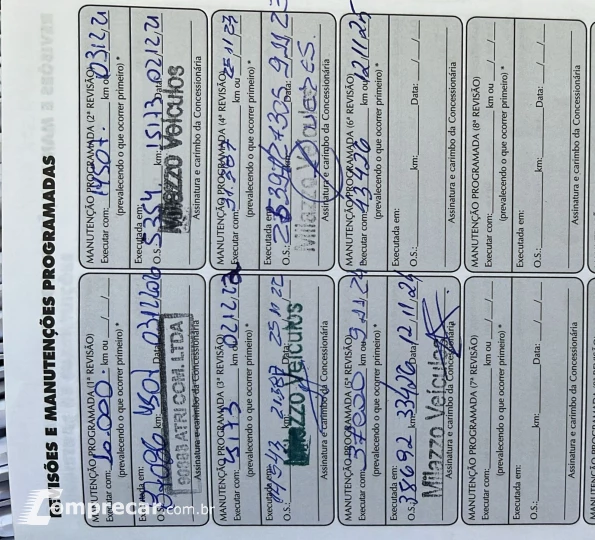 REVISÕES E MANUTENÇÕES PROGRAMADAS
MANUTENÇÃO PROGRAMADA (1ª REVISÃO)
Executar com: 10.000. km ou / /
(prevalecendo o que ocorrer primeiro) *
Executada em:
O.S.: km: 4507 Data: 03/12/20
90383 ATRI COM. LTDA
Assinatura e carimbo da Concessionária
MANUTENÇÃO PROGRAMADA (2ª REVISÃO)
Executar com: 14507. km ou 03/12/21
(prevalecendo o que ocorrer primeiro) *
Executada em:
O.S.: 5354 km: 15173 Data: 02/12/21
Milazzo Veiculos
Assinatura e carimbo da Concessionária
MANUTENÇÃO PROGRAMADA (3ª REVISÃO)
Executar com: 15173 km ou 02/12/22
(prevalecendo o que ocorrer primeiro) *
Executada em:
O.S.: km: 21387 Data: 25/11/22
Milazzo Veiculos
Assinatura e carimbo da Concessionária
MANUTENÇÃO PROGRAMADA (4ª REVISÃO)
Executar com: 31.387 km ou 25/11/23
(prevalecendo o que ocorrer primeiro) *
Executada em:
O.S.: km: Data: 9/11/23
Milazzo Veiculos
Assinatura e carimbo da Concessionária
MANUTENÇÃO PROGRAMADA (5ª REVISÃO)
Executar com: 37000 km ou 9/11/24
(prevalecendo o que ocorrer primeiro) *
Executada em:
O.S.: 38692 km: 33426 Data: 12/11/24
Milazzo Veiculos
Assinatura e carimbo da Concessionária
MANUTENÇÃO PROGRAMADA (6ª REVISÃO)
Executar com: 43426 km ou 12/11/25
(prevalecendo o que ocorrer primeiro) *
Executada em:
O.S.: km: Data: / /
Assinatura e carimbo da Concessionária
MANUTENÇÃO PROGRAMADA (7ª REVISÃO)
Executar com: km ou / /
(prevalecendo o que ocorrer primeiro) *
Executada em:
O.S.: km: Data: / /
Assinatura e carimbo da Concessionária
MANUTENÇÃO PROGRAMADA (8ª REVISÃO)
Executar com: km ou / /
(prevalecendo o que ocorrer primeiro) *
Executada em:
O.S.: km: Data: / /
Assinatura e carimbo da Concessionária
Comprecar.com.br